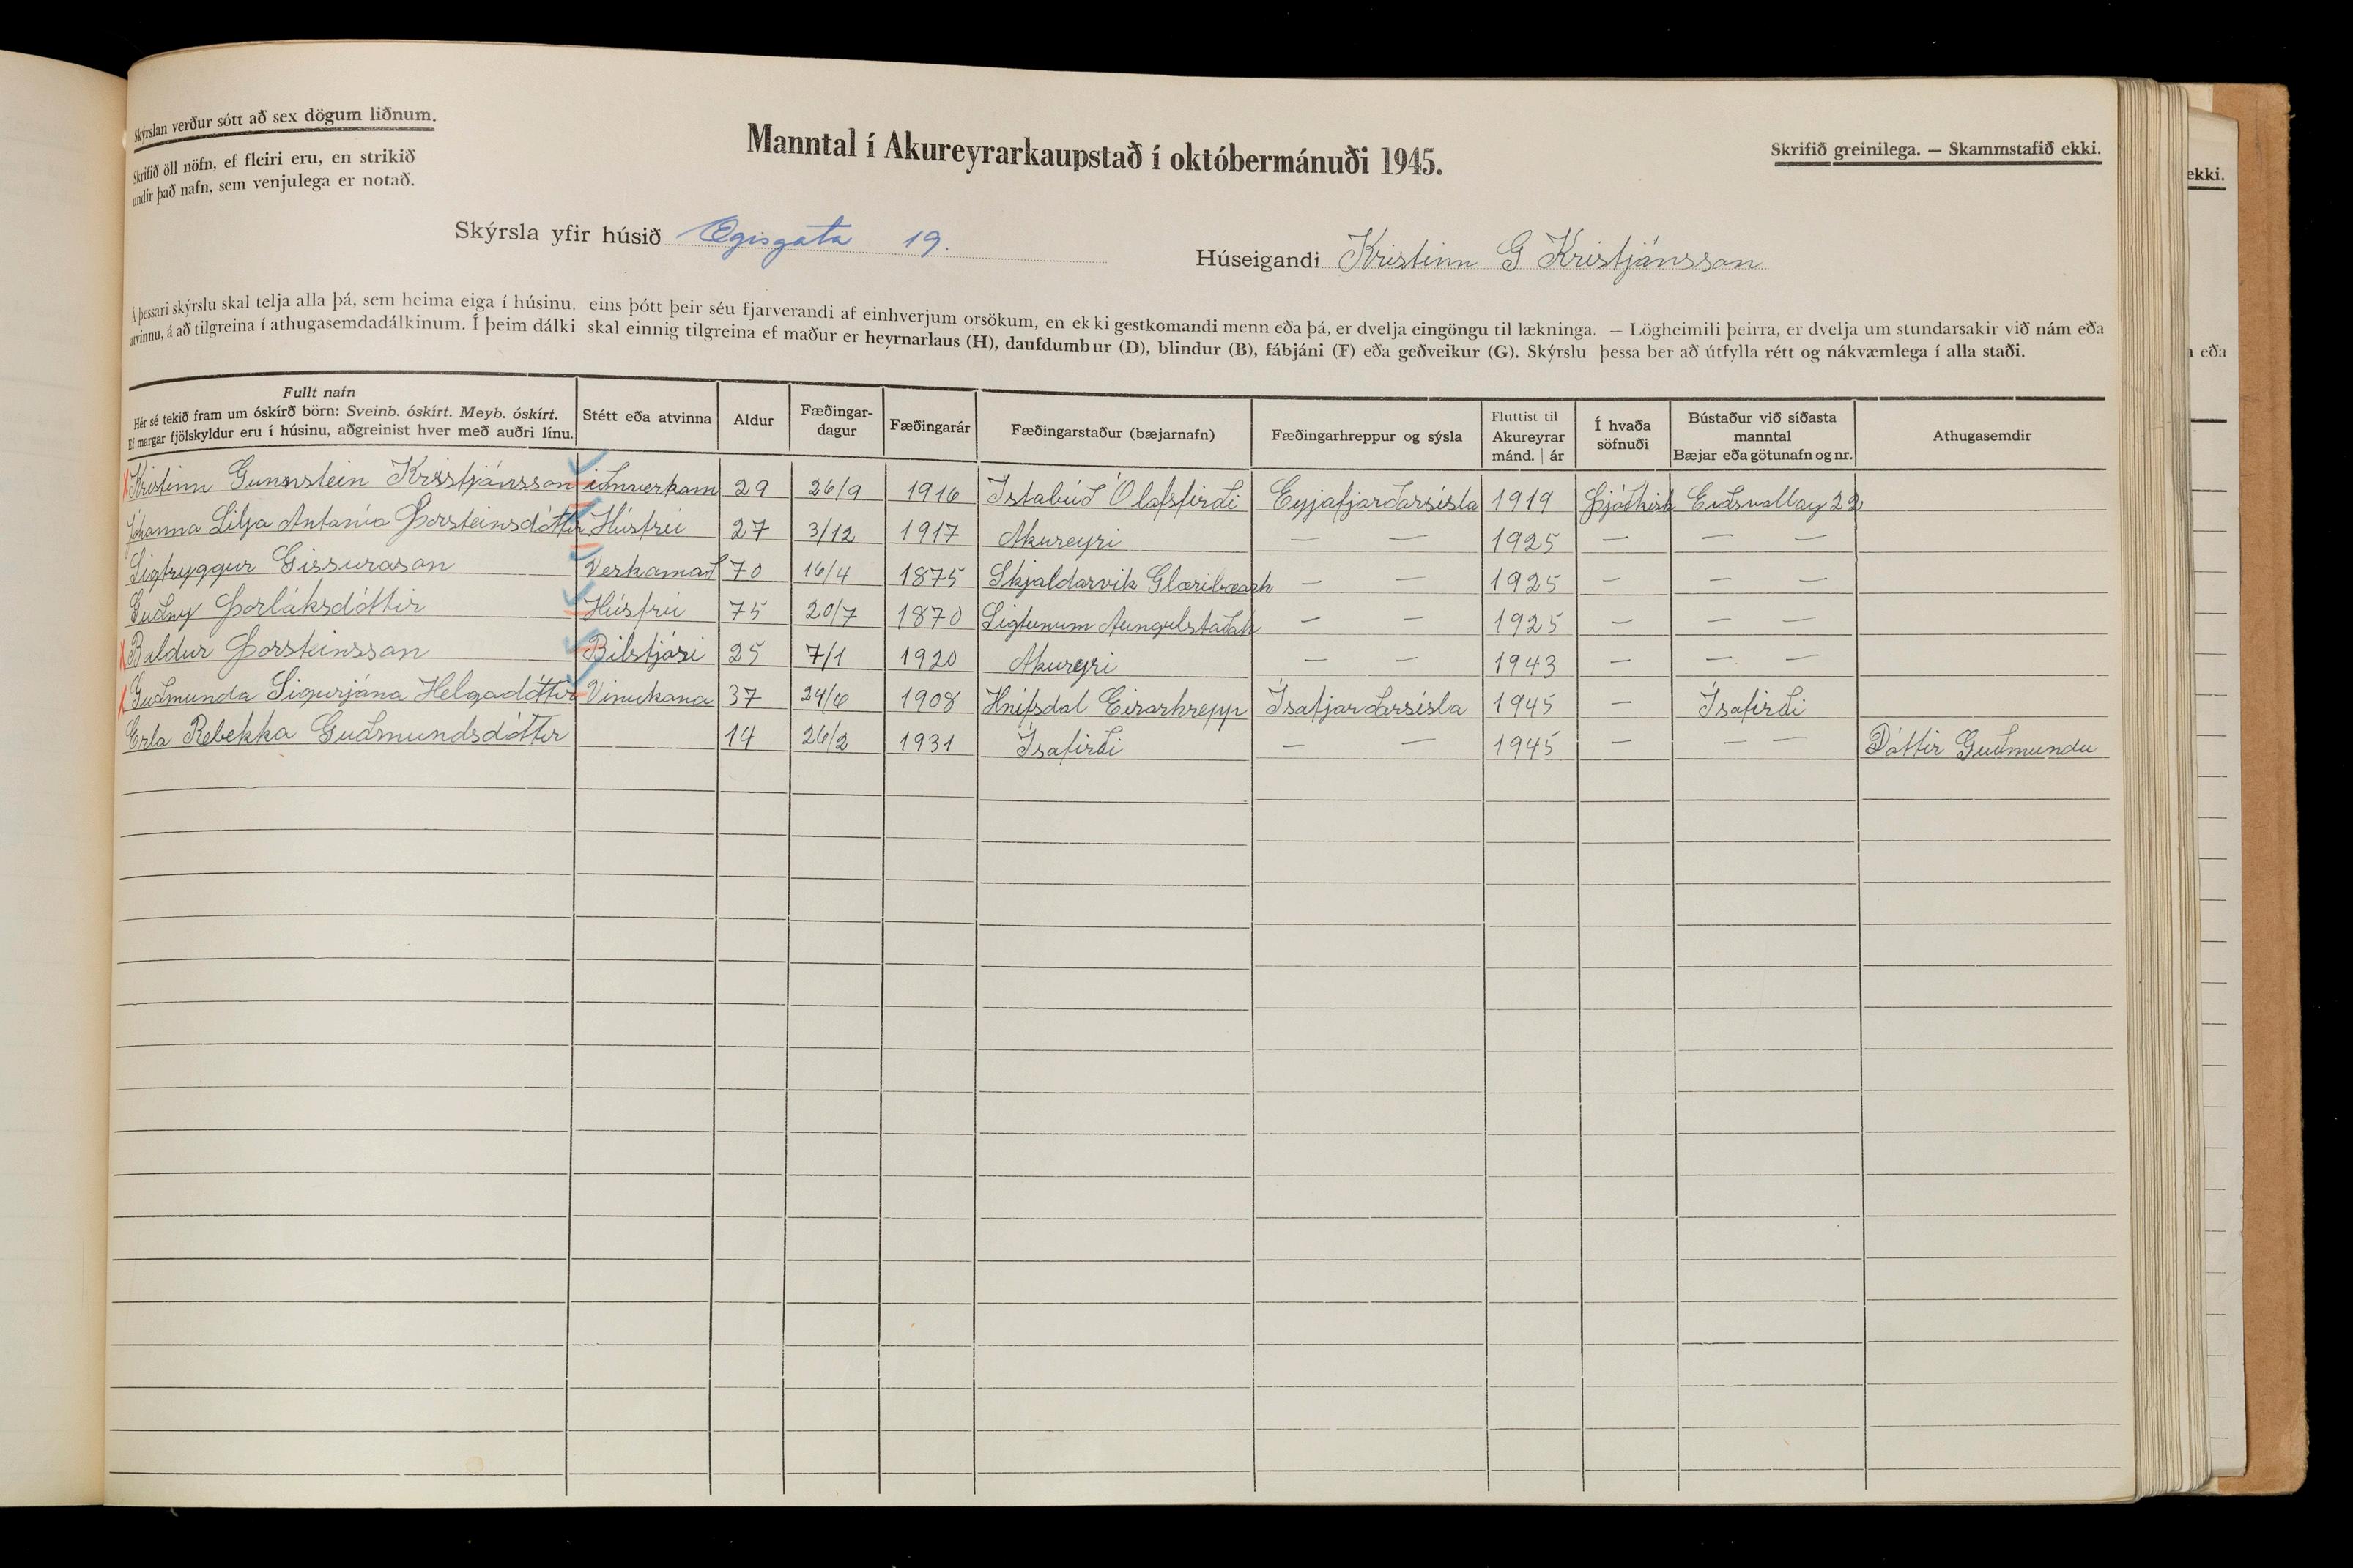 Skýrslan verður sótt að sex dögum liðnum.
Skrifið öll nöfn, ef fleiri eru, en strikið
undir það nafn, sem venjulega er notað.
Manntal í Akureyrarkaupstað í októbermánuði 1945.
Skrifið greinilega. — Skammstafið ekki.
ekki.
Skýrsla yfir húsið Ægisgata 19.
Húseigandi Kristinn G Kristjánsson
Á þessari skýrslu skal telja alla þá, sem heima eiga í húsinu, eins þótt þeir séu fjarverandi af einhverjum orsökum, en ekki gestkomandi menn eða þá, er dvelja eingöngu til lækninga. — Lögheimili þeirra, er dvelja um stundarsakir við nám eða
atvinnu, á að tilgreina í athugasemdadálkinum. Í þeim dálki skal einnig tilgreina ef maður er heyrnarlaus (H), daufdumbur (D), blindur (B), fábjáni (F) eða geðveikur (G). Skýrslu þessa ber að útfylla rétt og nákvæmlega í alla staði.
eða
Fullt nafn
Hér sé tekið fram um óskírð börn: Sveinb. óskírt. Meyb. óskírt.
Ef margar fjölskyldur eru í húsinu, aðgreinist hver með auðri línu.
Stétt eða atvinna
Aldur
Fæðingar-
dagur
Fæðingarár
Fæðingarstaður (bæjarnafn)
Fæðingarhreppur og sýsla
Fluttist til
Akureyrar
mánd. | ár
Í hvaða
söfnuði
Bústaður við síðasta
manntal
Bæjar eða götunafn og nr.
Athugasemdir
Kristinn Gunnstein Kristjánsson iðnverkam 29 26/9 1916 Ístabúð Ólafsfirði Eyjafjarðarsísla 1919 Þjóðkirk Eiðsvallag 22
Jóhanna Lilja Antanía Þorsteinsdóttir Húsfrú 27 3/12 1917 Akureyri — — 1925 — — —
Sigtryggur Gissurason Verkamað 70 16/4 1875 Skjaldarvik Glæsibæarh — — 1925 — — —
Guðny Þorláksdóttir Húsfrú 75 20/7 1870 Sigtunum Aungulstaðah — — 1925 — — —
Baldur Þorsteinsson Bilstjóri 25 7/1 1920 Akureyri — — 1943 — — —
Guðmunda Sigurjána Helgadóttir Vinukona 37 24/6 1908 Hnífsdal Eirarhrepp Ísafjarðarsísla 1945 — Ísafirði
Erla Rebekka Guðmundsdóttir 14 26/2 1931 Ísafirði — — 1945 — — — Dóttir Guðmundu